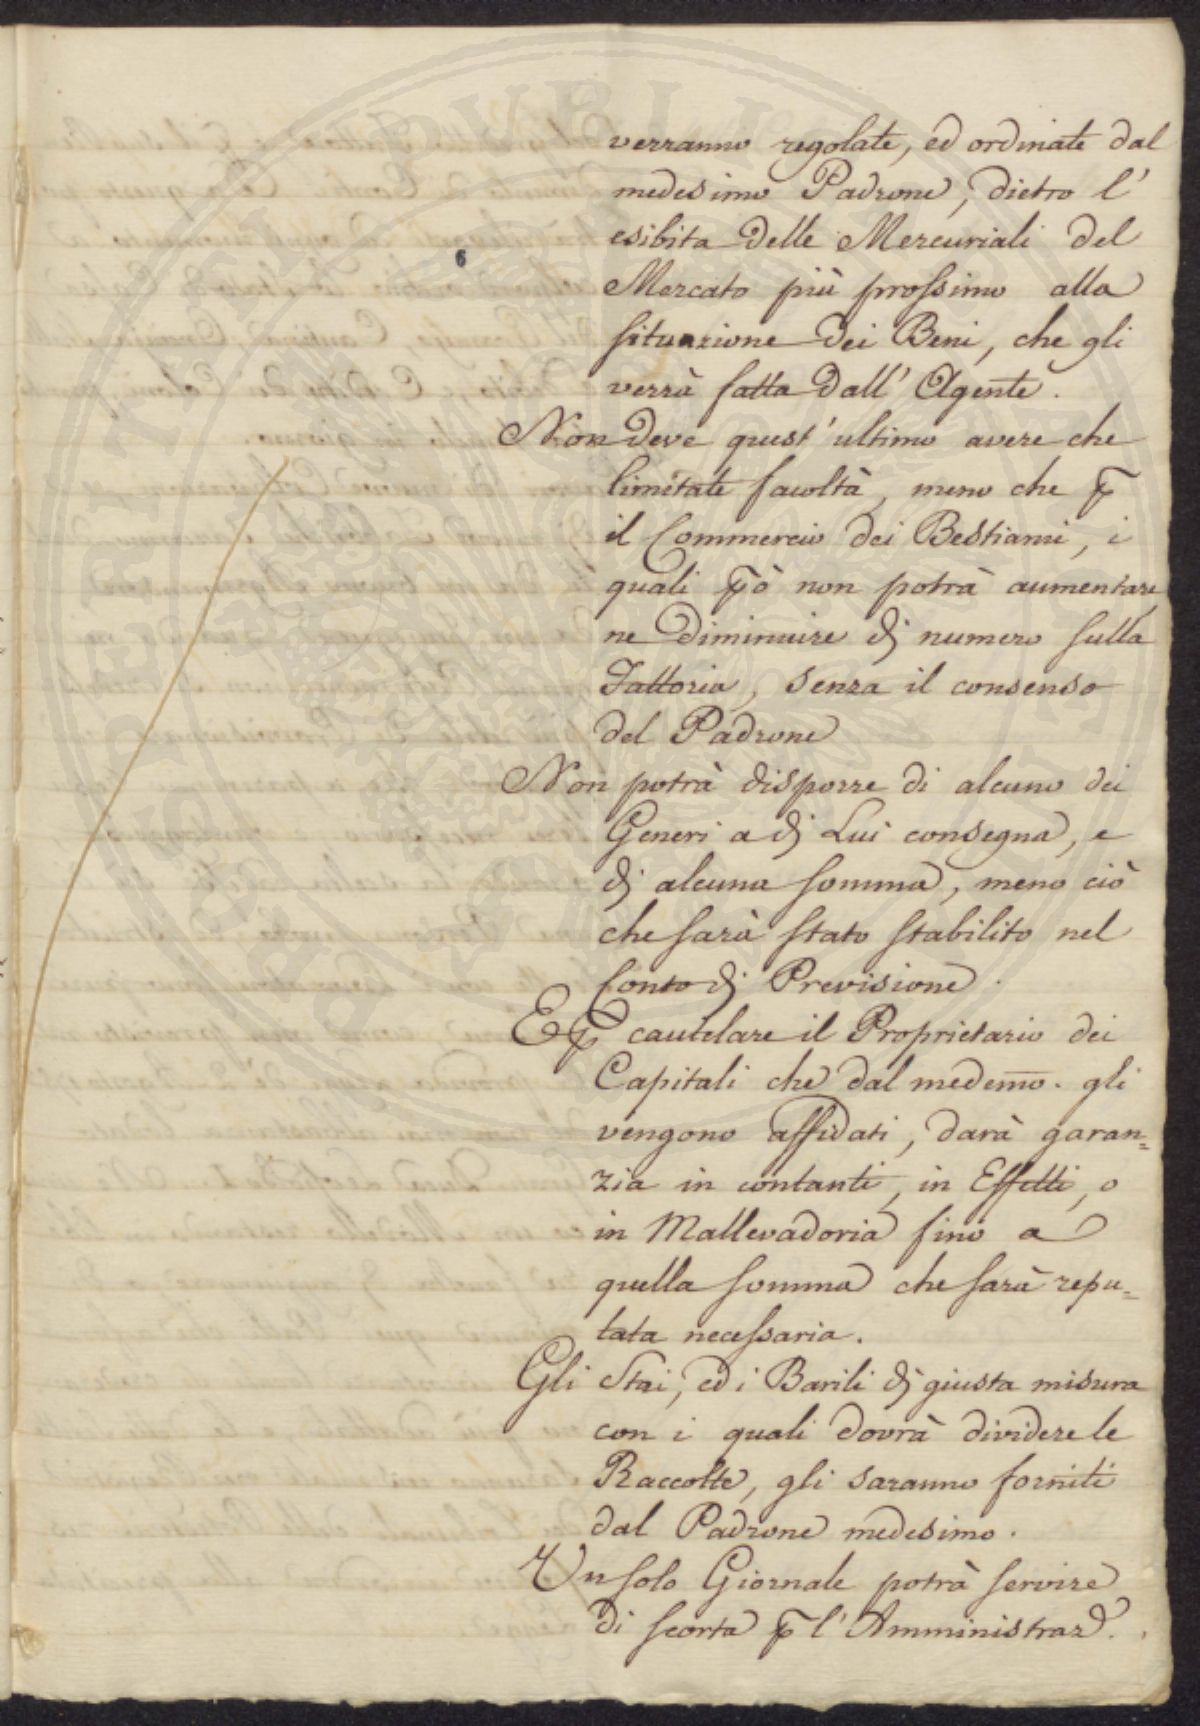 verranno regolate, ed ordinate dal
medesimo Padrone, dietro l'
esibita delle Mercuriali del
6
Mercato più prossimo alla
situazione dei Beni, che gli
verrà fatta dall' Agente.
Non deve quest' ultimo avere che
limitate facoltà, meno che ꝑ
il Commercio dei Bestiami, i
quali ꝑò non potrà aumentare
ne diminuire di numero sulla
Fattoria, senza il consenso
del Padrone
Non potrà disporre di alcuno dei
Generi a di Lui consegna, e
di alcuna somma, meno ciò
che sarà stato stabilito nel
Conto di Previsione.
E ꝑ cautelare il Proprietario dei
Capitali che dal medemo. gli
vengono affidati, darà garan=
zia in contanti, in Effetti, o
in Mallevadoria fino a
quella somma che sarà repu=
tata necessaria.
Gli Stai, ed i Barili di giusta misura
con i quali dovrà dividere le
Raccolte, gli saranno forniti
dal Padrone medesimo.
Un solo Giornale potrà servire
di scorta ꝑ l' Amministraze.